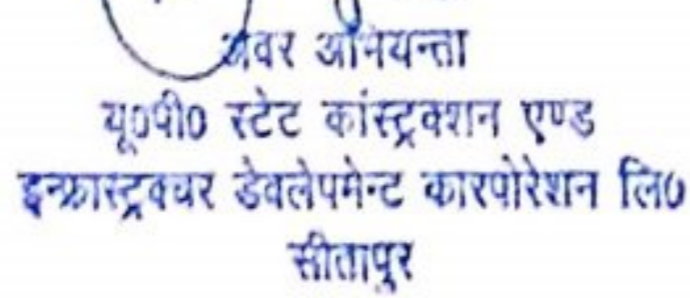 अवर अभियन्ता
यू०पी० स्टेट कांस्ट्रक्शन एण्ड
इन्फ्रास्ट्रक्चर डेवलेपमेन्ट कारपोरेशन लि०
सीतापुर